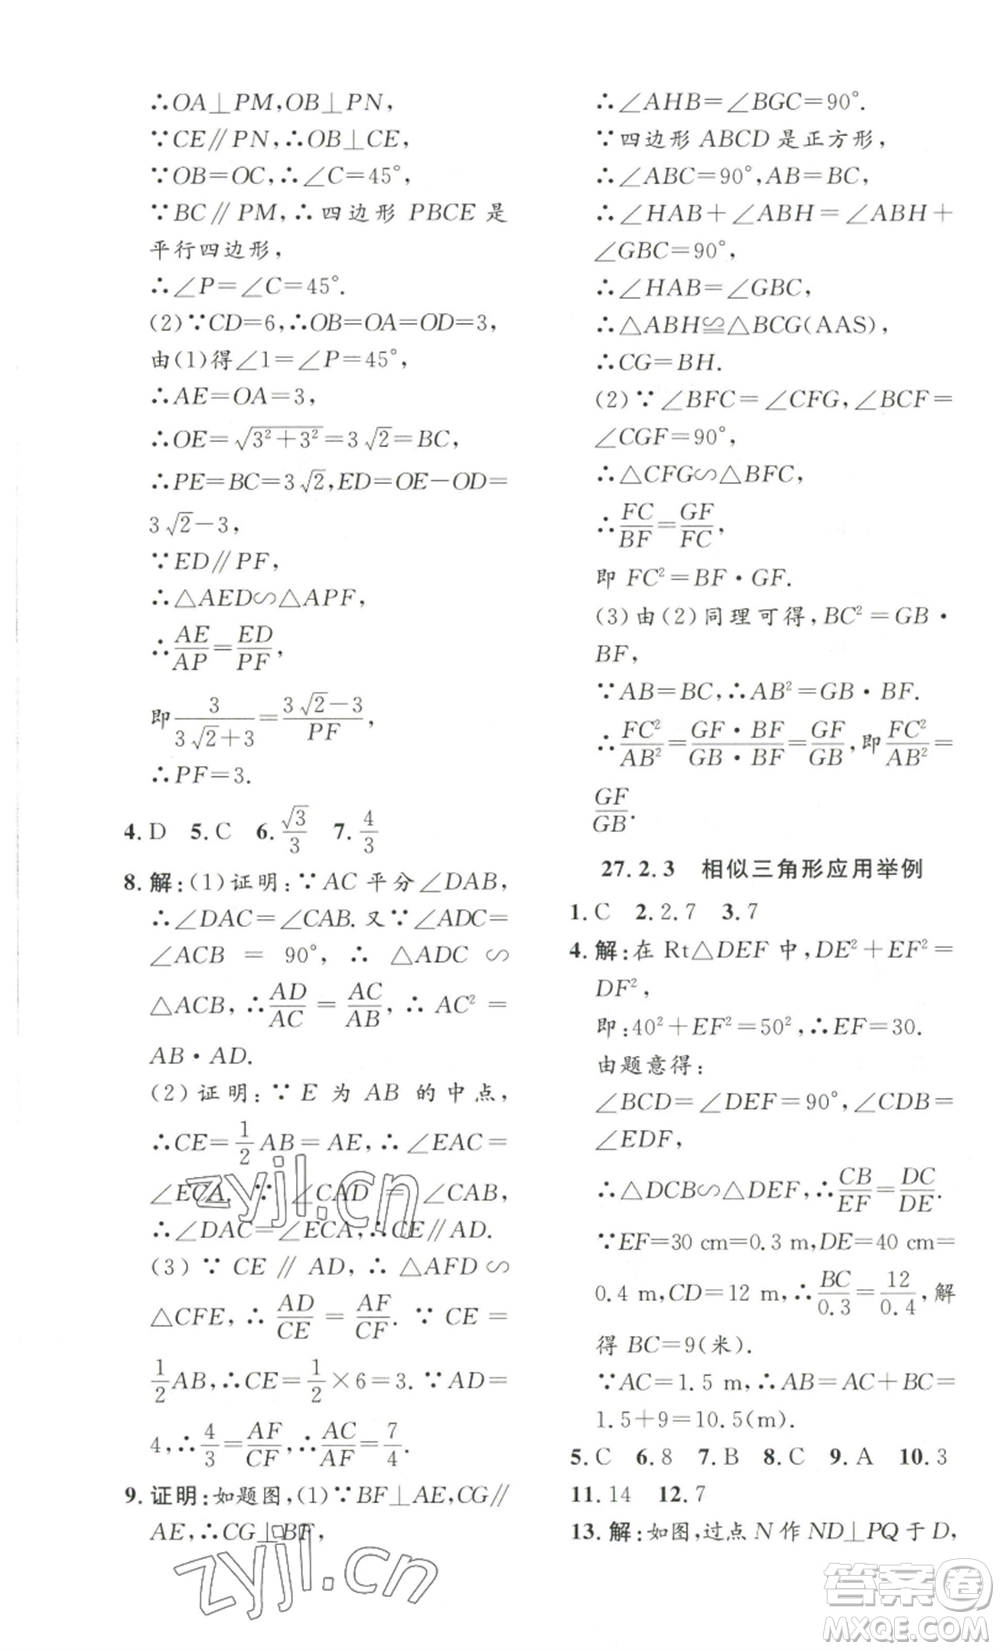 ∴OA⊥PM,OB⊥PN,
∵CE∥PN,∴OB⊥CE,
∵OB=OC,∴∠C=45°,
∵BC∥PM,∴四边形 PBCE是
平行四边形,
∴∠P=∠C=45°.
(2)∵CD=6,∴OB=OA=OD=3,
由(1)得∠1=∠P=45°,
∴AE=OA=3,
∴OE=√(3²+3²)=3√2=BC,
∴PE=BC=3√2,ED=OE-OD=
3√2-3,
∵ED∥PF,
∴△AED∽△APF,
∴AE/AP=ED/PF,
即3/(3√2+3)=(3√2-3)/PF,
∴PF=3.
4.D 5.C 6.√3/3 7.4/3
8.解:(1)证明:∵AC平分∠DAB,
∴∠DAC=∠CAB.又∵∠ADC=
∠ACB=90°,∴△ADC∽
△ACB,∴AD/AC=AC/AB,∴AC²=
AB·AD.
(2)证明:∵E为AB的中点,
∴CE=1/2AB=AE,∴∠EAC=
∠ECA.∵∠CAD=∠CAB,
∴∠DAC=∠ECA,∴CE∥AD.
(3)∵CE∥AD,∴△AFD∽
△CFE,∴AD/CE=AF/CF.∵CE=
1/2AB,∴CE=1/2×6=3.∵AD=
4,∴4/3=AF/CF,∴AC/AF=7/4.
9.证明:如题图,(1)∵BF⊥AE,CG∥
AE,∴CG⊥BF,
∴∠AHB=∠BGC=90°.
∵四边形ABCD是正方形,
∴∠ABC=90°,AB=BC,
∴∠HAB+∠ABH=∠ABH+
∠GBC=90°,
∴∠HAB=∠GBC,
∴△ABH≌△BCG(AAS),
∴CG=BH.
(2)∵∠BFC=∠CFG,∠BCF=
∠CGF=90°,
∴△CFG∽△BFC,
∴FC/BF=GF/FC,
即FC²=BF·GF.
(3)由(2)同理可得,BC²=GB·
BF,
∵AB=BC,∴AB²=GB·BF.
∴FC²/AB²=GF·BF/GB·BF=GF/GB,即FC²/AB²=
GF/GB.
27.2.3 相似三角形应用举例
1.C 2.2.7 3.7
4.解:在Rt△DEF中,DE²+EF²=
DF²,
即:40²+EF²=50²,∴EF=30.
由题意得:
∠BCD=∠DEF=90°,∠CDB=
∠EDF,
∴△DCB∽△DEF,∴CB/EF=DC/DE.
∵EF=30 cm=0.3 m,DE=40 cm=
0.4 m,CD=12 m,∴BC/0.3=12/0.4,解
得BC=9(米).
∵AC=1.5 m,∴AB=AC+BC=
1.5+9=10.5(m).
5.C 6.8 7.B 8.C 9.A 10.3
11.14 12.7
13.解:如图,过点N作ND⊥PQ于D,
zyjl.cn
zyjl.cn
答案卷
MXQE.COM